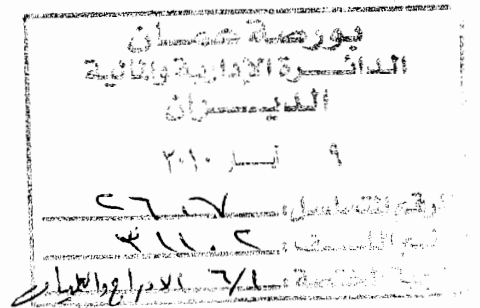 بورصة عمان
الدائرة الإدارية والمالية
الديوان
٩ أيار ٢٠١٠
الرقم المتسلسل:
رقم الملف: ٣١١٠٢
الجهة المختصة: ٦/١ الادراج والعمليات